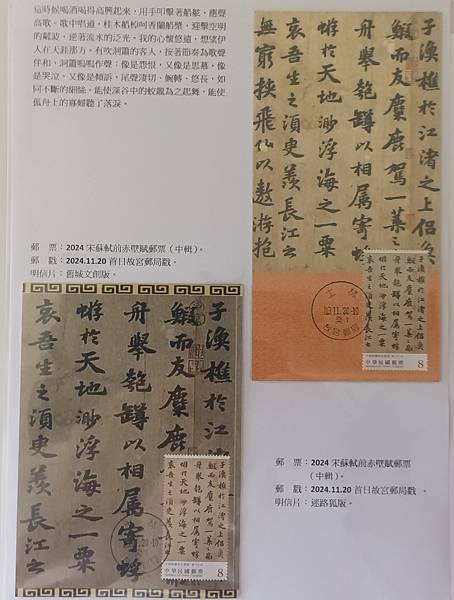 這時候喝酒喝得高興起來，用手叩擊著船舷，應聲
高歌。歌中唱道：桂木船棹呵香蘭船槳，迎擊空明
的粼波，逆著流水的泛光。我的心懷悠遠，想望伊
人在天涯那方。有吹洞簫的客人，按著節奏為歌聲
伴和，洞簫嗚嗚作聲：像是怨恨，又像是思慕，像
是哭泣，又像是傾訴，尾聲淒切、婉轉、悠長，如
同不斷的細絲。能使深谷中的蛟龍為之起舞，能使
孤舟上的寡婦聽了落淚。
子漁樵於江渚之上侶魚
鰕而友麋鹿駕一葉之
舟舉匏罇以相屬寄
蝣於天地渺浮海之一粟
哀吾生之須臾羨長江之
無窮挾飛仙以遨遊抱
中華民國郵票
8
郵　票：2024 宋蘇軾前赤壁賦郵票（中輯）。
郵　戳：2024.11.20 首日故宮郵局戳。
明信片：舊城文創版。
子漁樵於江
鰕而友麋鹿
舟舉匏罇以相屬寄蜉
蝣於天地渺浮海之一粟
哀吾生之須臾羨長江之
中華民國郵票
8
郵　票：2024 宋蘇軾前赤壁賦郵票
（中輯）。
郵　戳：2024.11.20 首日故宮郵局戳 。
明信片：迷路狐版。